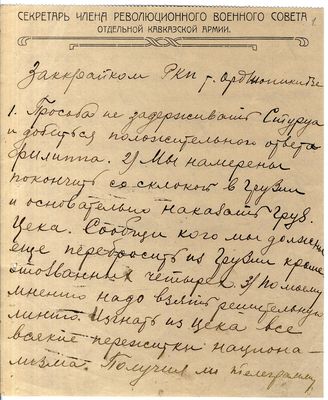 СЕКРЕТАРЬ ЧЛЕНА РЕВОЛЮЦИОННОГО ВОЕННОГО СОВЕТА
ОТДЕЛЬНОЙ КАВКАЗСКОЙ АРМИИ.
Заккрайком РКП т. Орджоникидзе
1. Просьба не задерживать Ситуруа
и добиться положительного ответа
Филиппа. 2) Мы намерены
покончить со склокой в Грузии
и основательно наказать Груз.
Цека. Сообщи кого мы должны
еще перебросить из Грузии кроме
отозванных четырех. 3) По моему
мнению надо взять решительную
линию. Изгнать из цека все
всякие пережитки национа-
лизма. Получил ли телеграмму